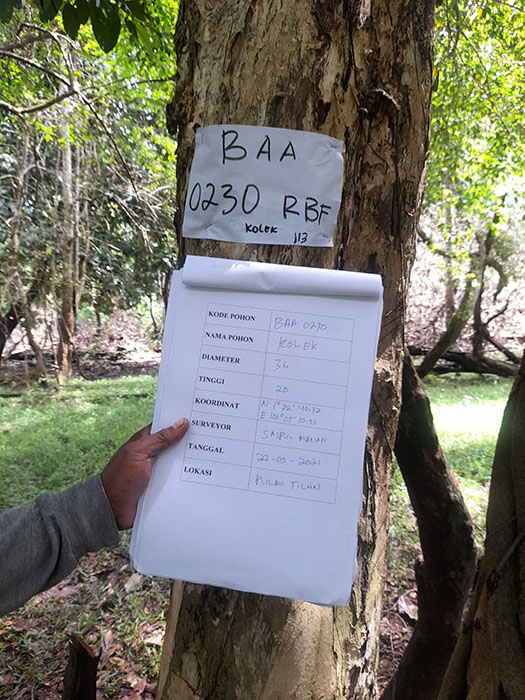 BAA
0230 RBF
KOLEK 113
KODE POHON BAA 0230
NAMA POHON KOLEK
DIAMETER 36
TINGGI 20
KOORDINAT
E 101° 05'
SURVEYOR MANAN
TANGGAL 22-03-2021
LOKASI PULAU TILAN